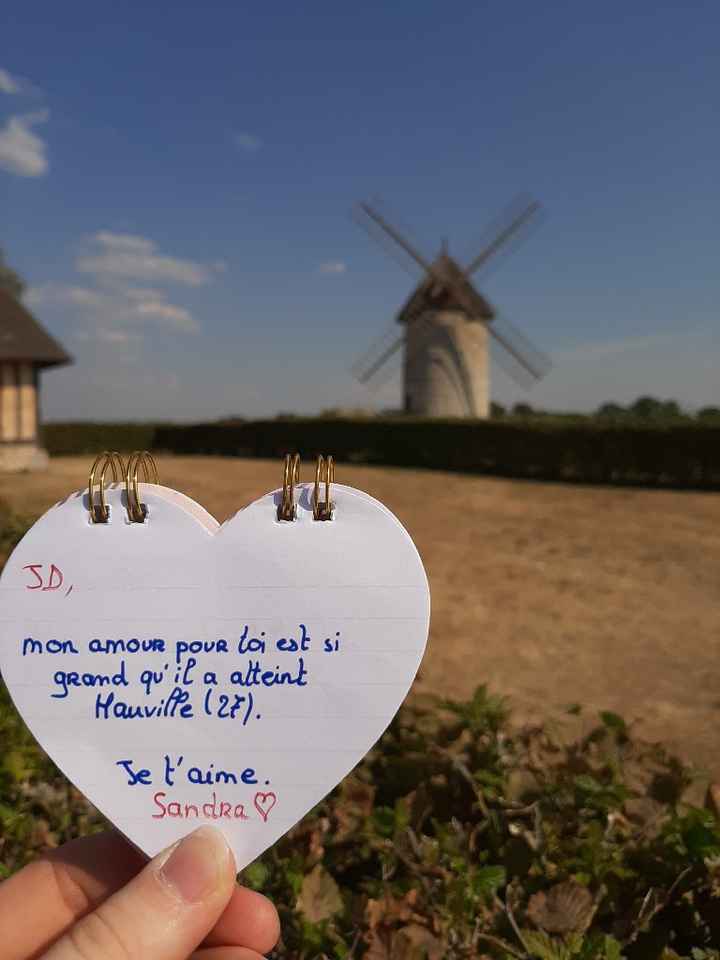 JD,
mon amour pour toi est si
grand qu'il a atteint
Hauville (27).
Je t'aime.
Sandra ♡